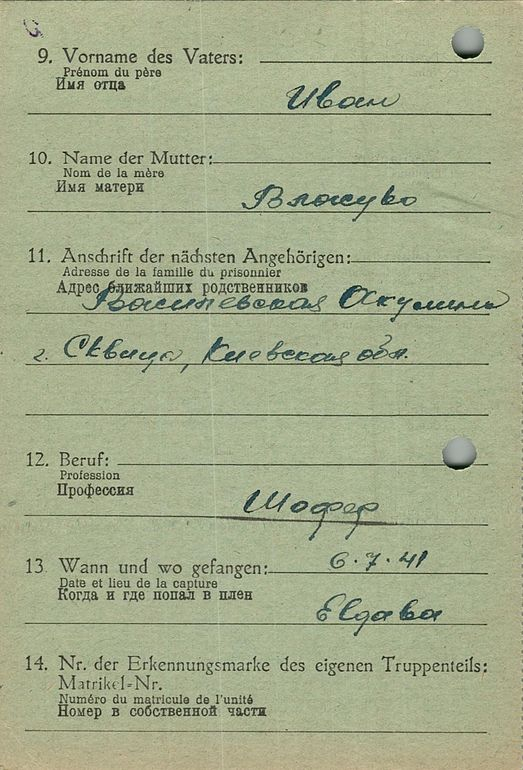 9. Vorname des Vaters:
Prénom du père
Имя отца
Иван
10. Name der Mutter:
Nom de la mère
Имя матери
11. Anschrift der nächsten Angehörigen:
Adresse de la famille du prisonnier
Адрес ближайших родственников
Василевская Акулина
г. Сквира, Киевская обл.
12. Beruf:
Profession
Профессия
Шофер
13 Wann und wo gefangen:
6.7.41
Date et lieu de la capture
Когда и где попал в плен
Elgava
14. Nr. der Erkennungsmarke des eigenen Truppenteils:
Matrikel-Nr.
Numéro du matricule de l'unité
Номер в собственной части